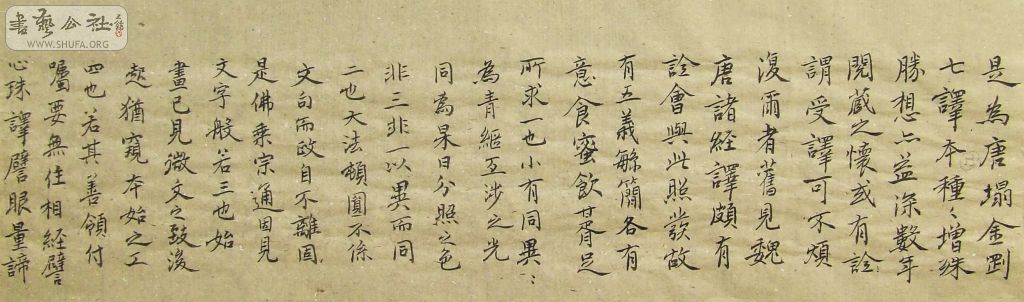 是為唐塌金剛
七譯本種〻增殊
勝想亦益深數年
閱蔵之懷或有詮
謂受譯可不煩
復爾者舊見魏
唐諸經譯頗有
詮會與此照發故
有五義緐簡各有
意食蜜飲甘胥足
所求一也小有同異〻
為青緼互涉之光
同為杲日分照之色
非三非一以異而同
二也大法頓圓不係
文句而政自不離因
是佛乘宗通因見
文字般若三也始
畫已見微文之致後
起猶窺本始之工
四也若其善領付
囑要無住相經譬
心珠譯譬眼量諦
書藝公社
WWW.SHUFA.ORG